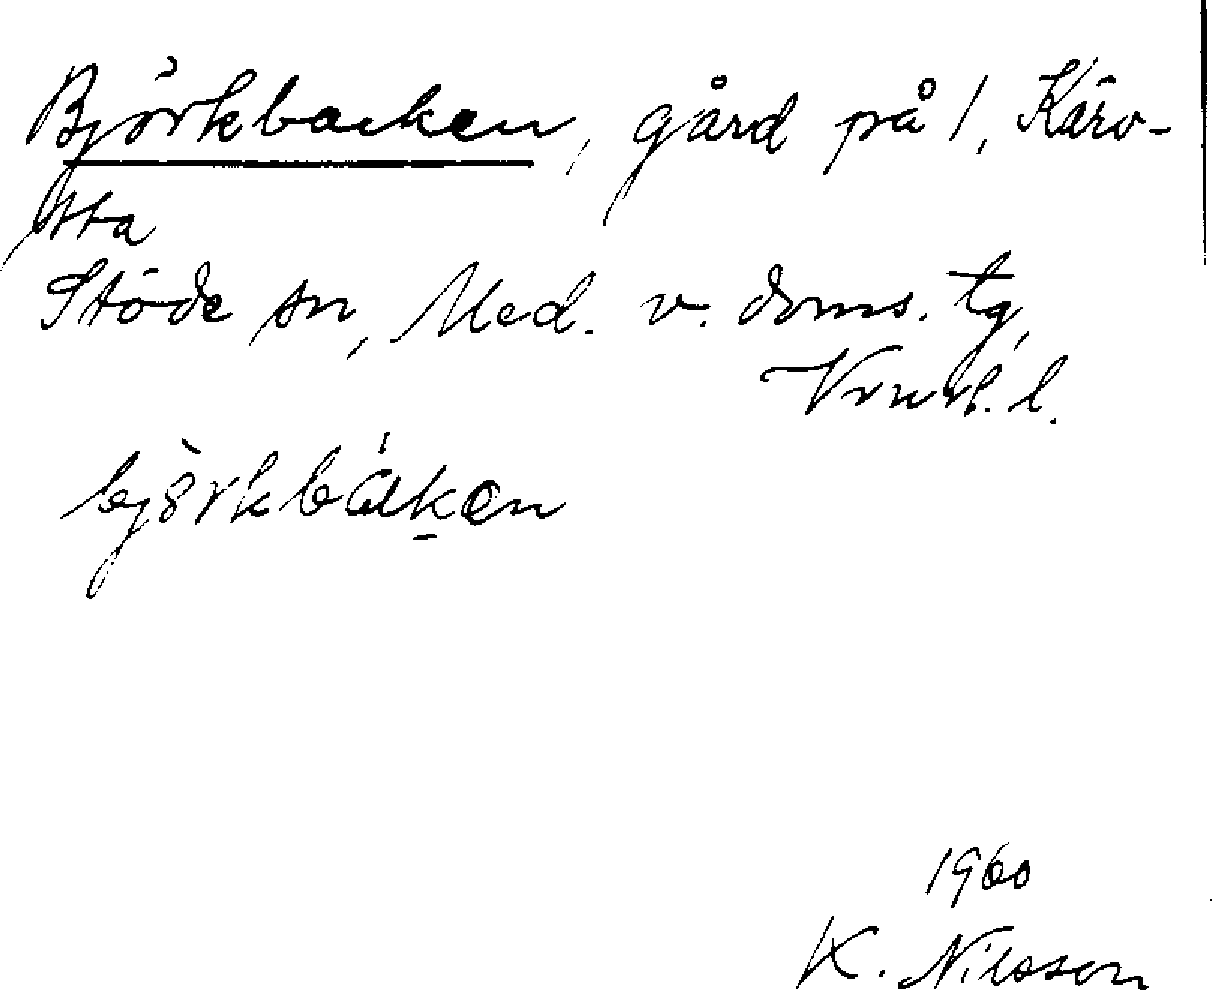 Björkbacken, gård på 1, Kärv-
sta
Stöde sn, Med. v. doms. tg,
l.
björkbáken
1960
K. Nilsson